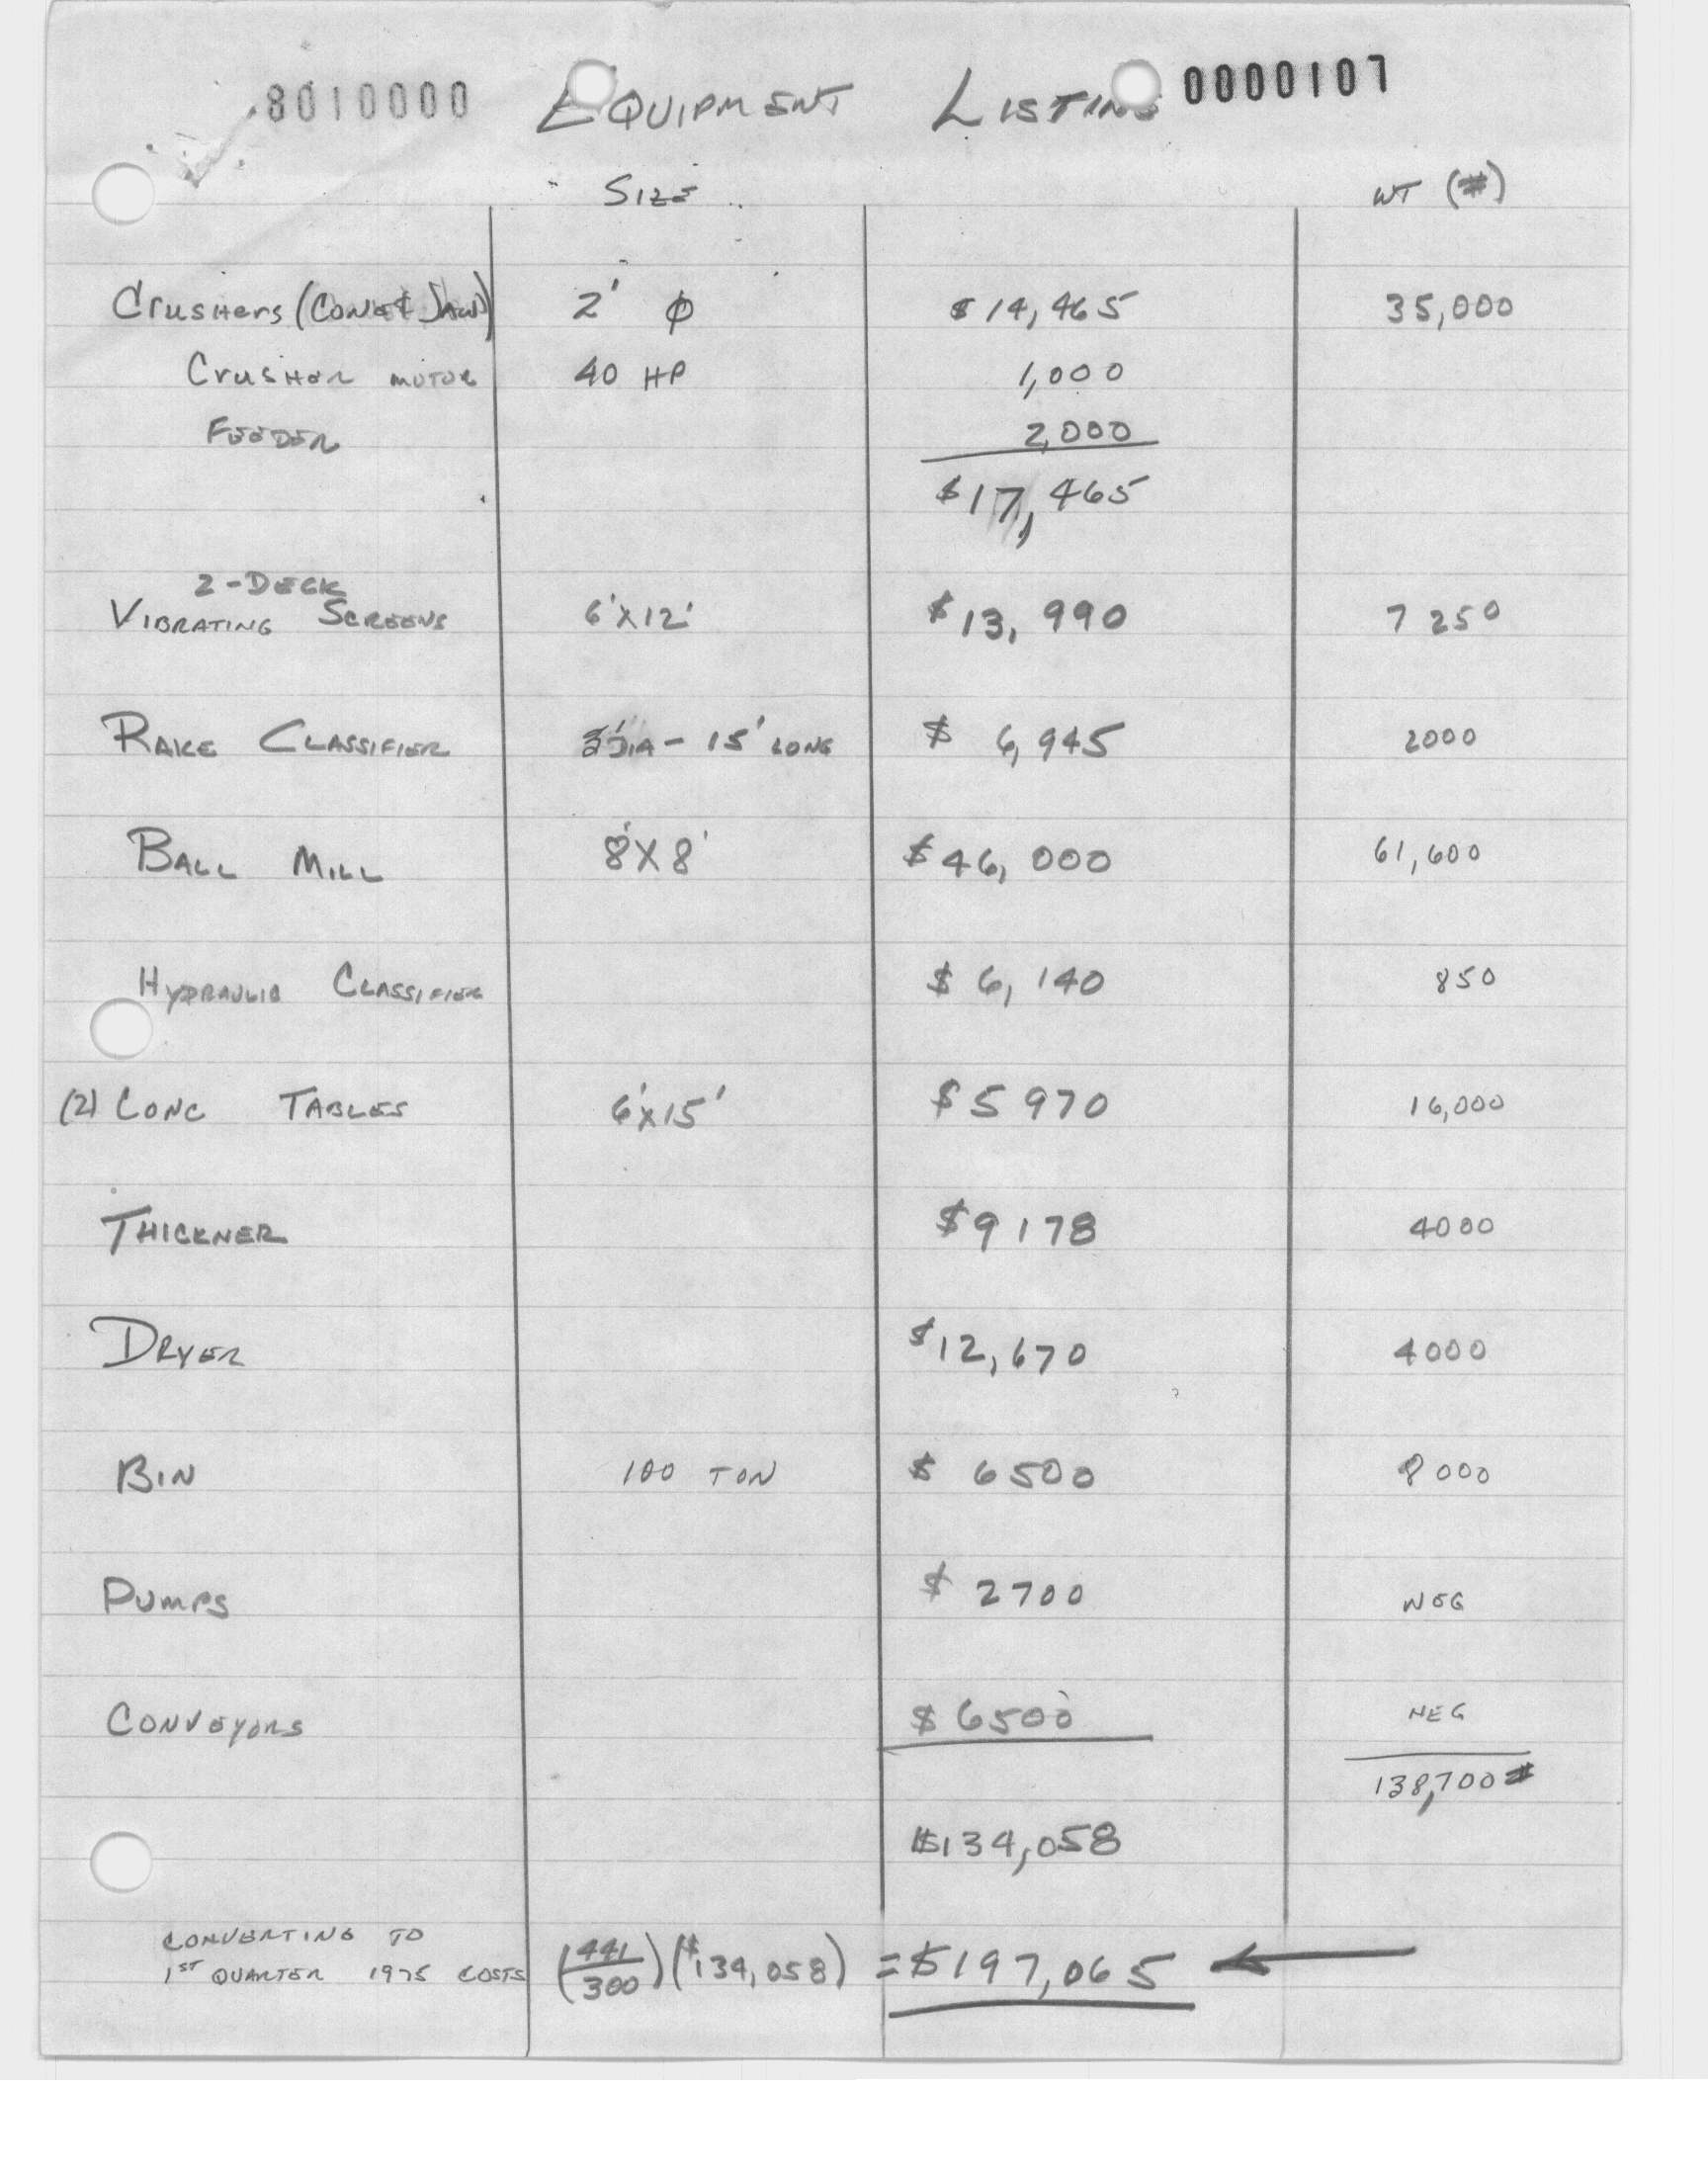 8010000 EQUIPMENT LISTING 0000107
SIZE WT (#)
CrusHers (CONE & JAW) 2' ϕ $14,465 35,000
CrusHER MOTOR 40 HP 1,000
FEEDER 2,000
$17,465
2-DECK
VIBRATING SCREENS 6'X12' $13,990 7250
RAKE CLASSIFIER DIA - 15' LONG $6,945 2000
BALL MILL 8'X8' $46,000 61,600
HYDRAULIC CLASSIFIER $6,140 850
(2) CONC TABLES 6'X15' $5970 16,000
THICKNER $9178 4000
DRYER $12,670 4000
BIN 100 TON $6500 8000
PUMPS $2700 NEG
CONVEYORS $6500 NEG
138,700#
$134,058
CONVERTING TO
1ST QUARTER 1975 COSTS (441/300)($134,058) = $197,065